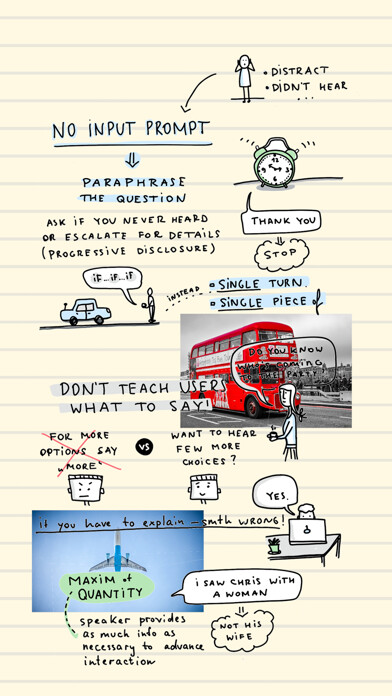 • DISTRACT
• DIDN'T HEAR
...
NO INPUT PROMPT
PARAPHRASE
THE QUESTION
ASK IF YOU NEVER HEARD
OR ESCALATE FOR DETAILS
(PROGRESSIVE DISCLOSURE)
12
THANK YOU
STOP
iF...iF...iF
INSTEAD
• SINGLE TURN.
• SINGLE PIECE of
DO YOU KNOW
WHO'S COMING
TO THE PARTY?
DON'T TEACH USERS
WHAT TO SAY!
FOR MORE
OPTIONS SAY
"MORE"
VS
WANT TO HEAR
FEW MORE
CHOICES?
YES.
if you have to explain – smth WRONG!
MAXIM of
QUANTITY
I SAW CHRIS WITH
A WOMAN
NOT HIS
WIFE
speaker provides
as much info as
necessary to advance
interaction